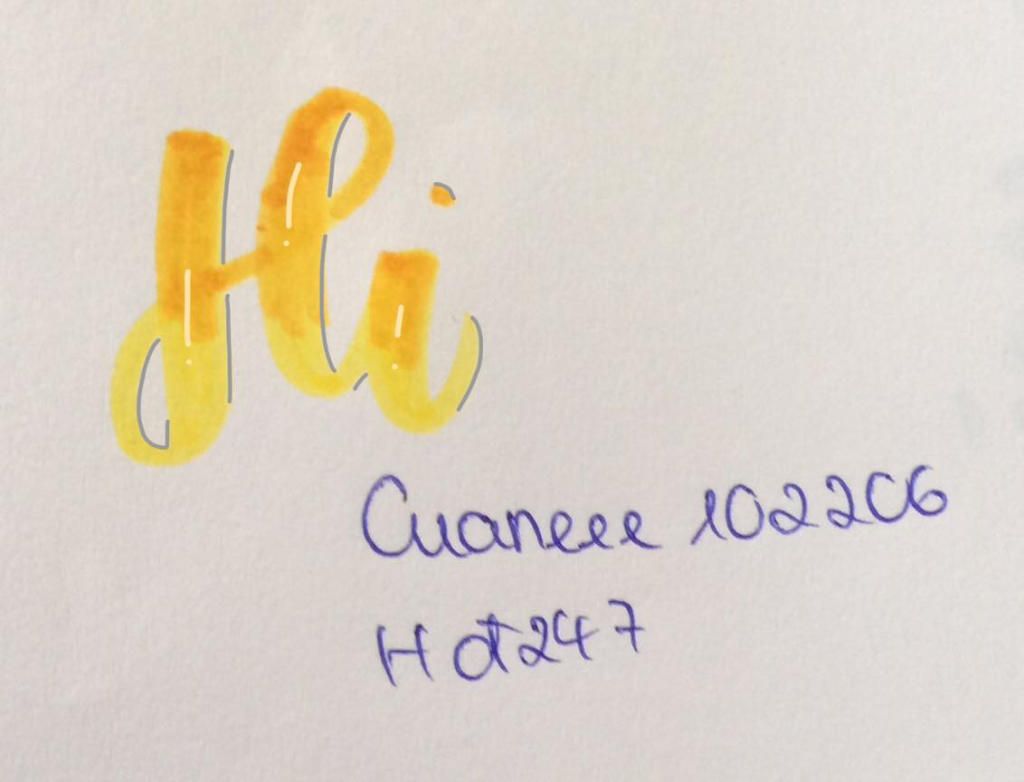 Hi
Cuaneee 102206
Hot247